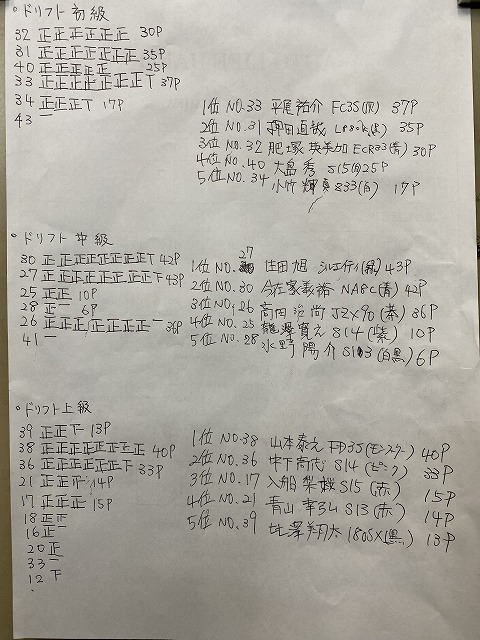 。ドリフト初級
32 正正正正正正 30P
31 正正正正正正正 35P
40 正正正正正 25P
33 正正正正正正正T 37P
34 正正正T 17P
43 一
1位 NO.33 平尾祐介 FC3S(灰) 37P
2位 NO.31 直哉 35P
3位 NO.32 肥塚英美加 ECR33(青) 30P
4位 NO.40 大畠秀 S15(白) 25P
5位 NO.34 小竹輝真 S33(白) 17P
。ドリフト中級
30 正正正正正正正正T 42P
27 正正正正正正正正下 43P
25 正正 10P
28 正一 6P
26 正正正正正正正一 36P
41 一
1位 NO.27 住田旭 シルエイティ(緑) 43P
2位 NO.30 今在家義裕 NA8C(青) 42P
3位 NO.26 高田治尚 JZX90(茶) 36P
4位 NO.25 龍澤寛之 S14(紫) 10P
5位 NO.28 水野陽介 S13(白黒) 6P
。ドリフト上級
39 正正下 13P
38 正正正正正正正正 40P
36 正正正正正正下 33P
21 正正 14P
17 正正正 15P
18 正正
16 正一
20 正
33 一
12 下
1位 NO.38 山本泰之 FD3S(モンスター) 40P
2位 NO.36 中下高代 S14(ピンク) 33P
3位 NO.17 入船梨娥 S15(赤) 15P
4位 NO.21 青山孝弘 S13(赤) 14P
5位 NO.39 翔太 180SX(黒) 13P